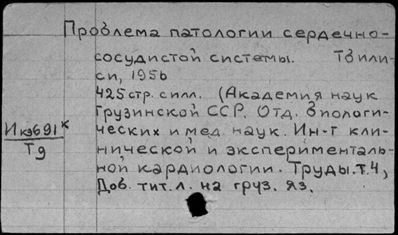 Проблема патологии сердечно-
сосудистой системы. Тбили-
си, 1956
425 стр. с илл. (Академия наук
Грузинской ССР. Отд. биологи-
ческих и мед. наук. Ин-т кли-
нической и эксперименталь-
ной кардиологии. Труды. т. 4,
Доб. тит. л. на груз. яз.
Икэ691к
Т9